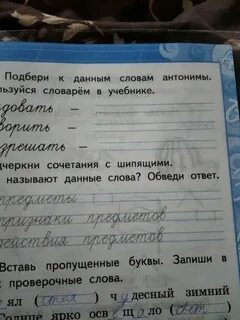 Подбери к данным словам антонимы.
льзуйся словарём в учебнике.
довать –
ворить –
зрешать –
дчеркни сочетания с шипящими.
называют данные слова? Обведи ответ.
предметы
признаки предметов
действия предметов
Вставь пропущенные буквы. Запиши в
проверочные слова.
ял ( стоя ) чудесный зимний
Солнце ярко осв е щ а ло ( свет )